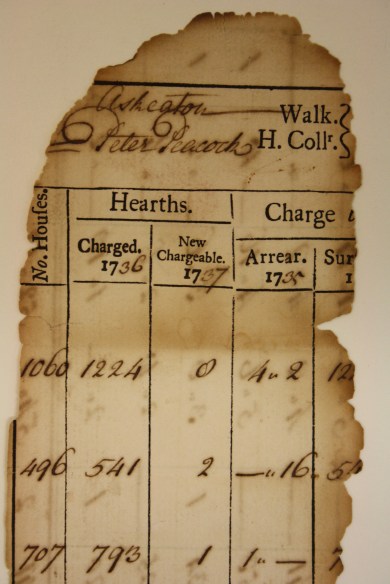 Askeaton Walk.
Peter Peacock H. Collr.
No. Houſes.
Hearths.
Charge
Charged.
1736
New
Chargeable.
1737
Arrear.
1735
Sur
1
1060 1224 0 4 " 2 12
496 541 2 — " 16 " 54
707 793 1 1 " — 7